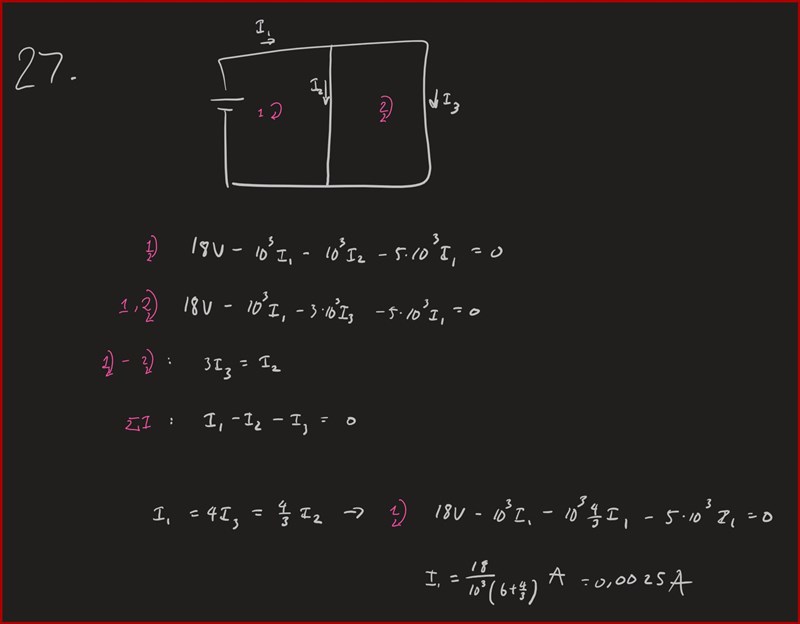 27.
I₁
I₂
I₃
1)
2)
1) 18V − 10³I₁ − 10³I₂ − 5·10³I₁ = 0
1,2) 18V − 10³I₁ − 3·10³I₃ − 5·10³I₁ = 0
1) − 2) : 3I₃ = I₂
ΣI : I₁ − I₂ − I₃ = 0
I₁ = 4I₃ = 4/3 I₂ → 1) 18V − 10³I₁ − 10³ 4/3 I₁ − 5·10³I₁ = 0
I₁ = 18/10³(6+4/3) A = 0,0025 A